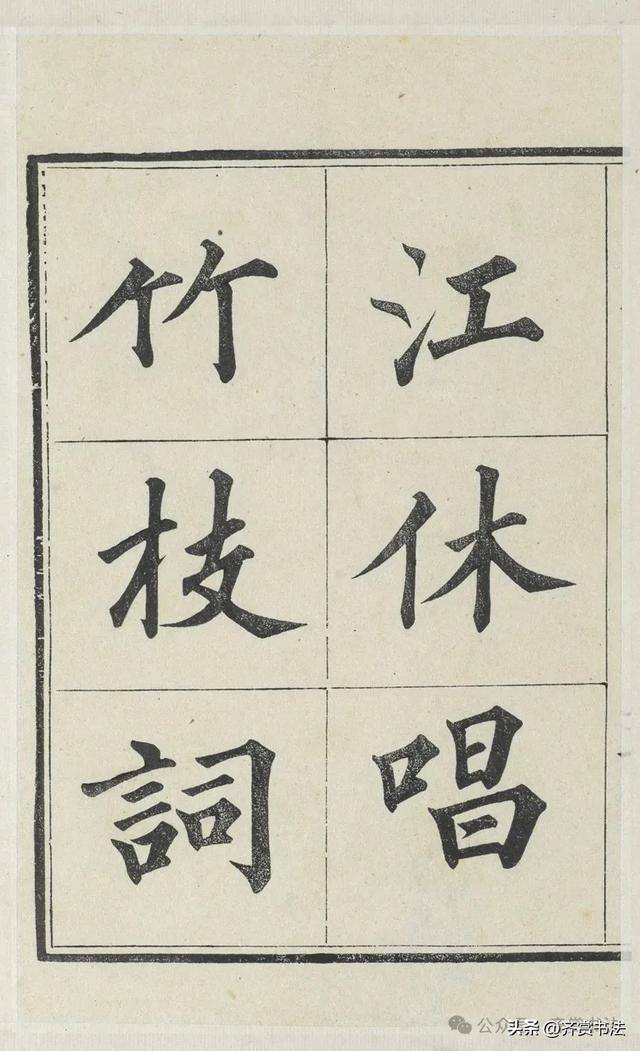 江休唱
竹枝詞
公众号
头条 @齐赏书法